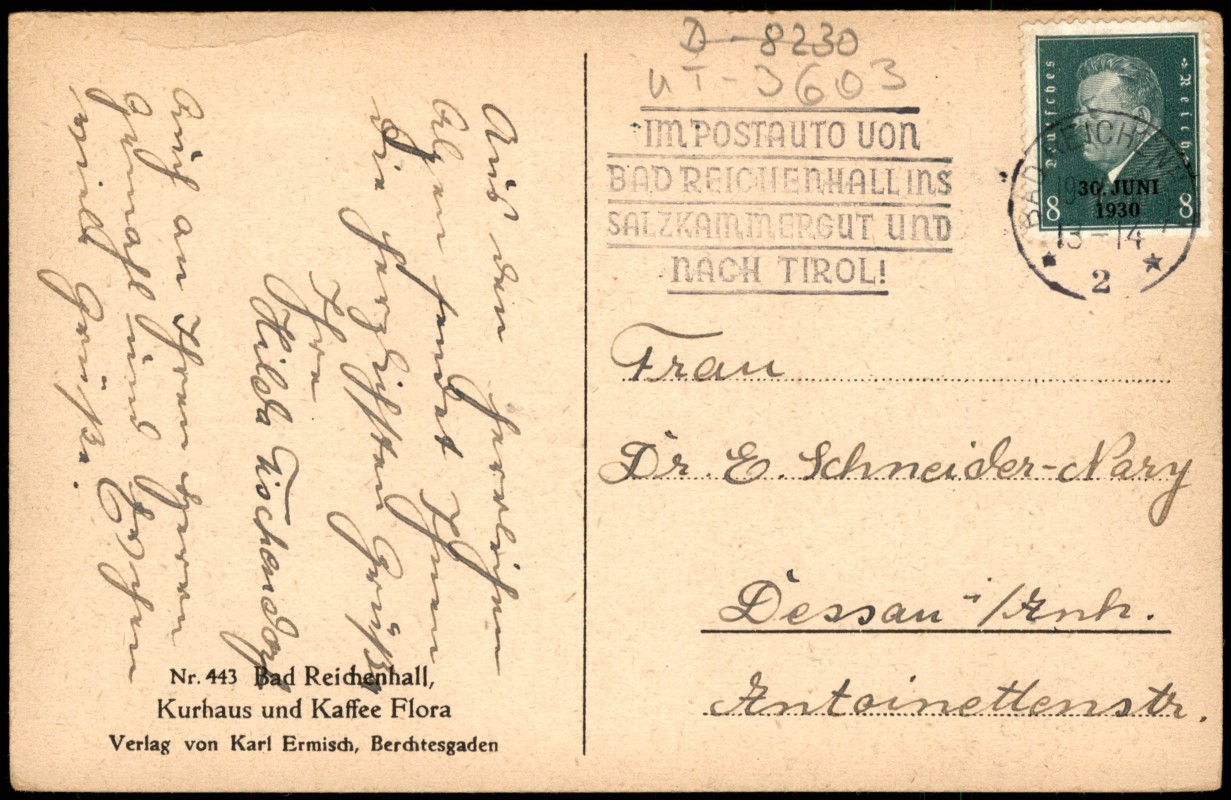 D-8230
UT-3603
IM POSTAUTO VON
BAD REICHENHALL INS
SALZKAMMERGUT UND
NACH TIROL!
Deutsches Reich
30. JUNI
1930
8 8
BAD REICHENHALL
13-14
2
Frau
Dr. E. Schneider-Nary
Dessau-/Anh.
Antoinettenstr.
Aus den herrlichen
Alpen sendet Ihnen
die herzlichsten Grüße
Ihre
Hilda Tischendorf
Auch an Ihren Herrn
Gemahl und
viele Grüße.
Nr. 443 Bad Reichenhall,
Kurhaus und Kaffee Flora
Verlag von Karl Ermisch, Berchtesgaden